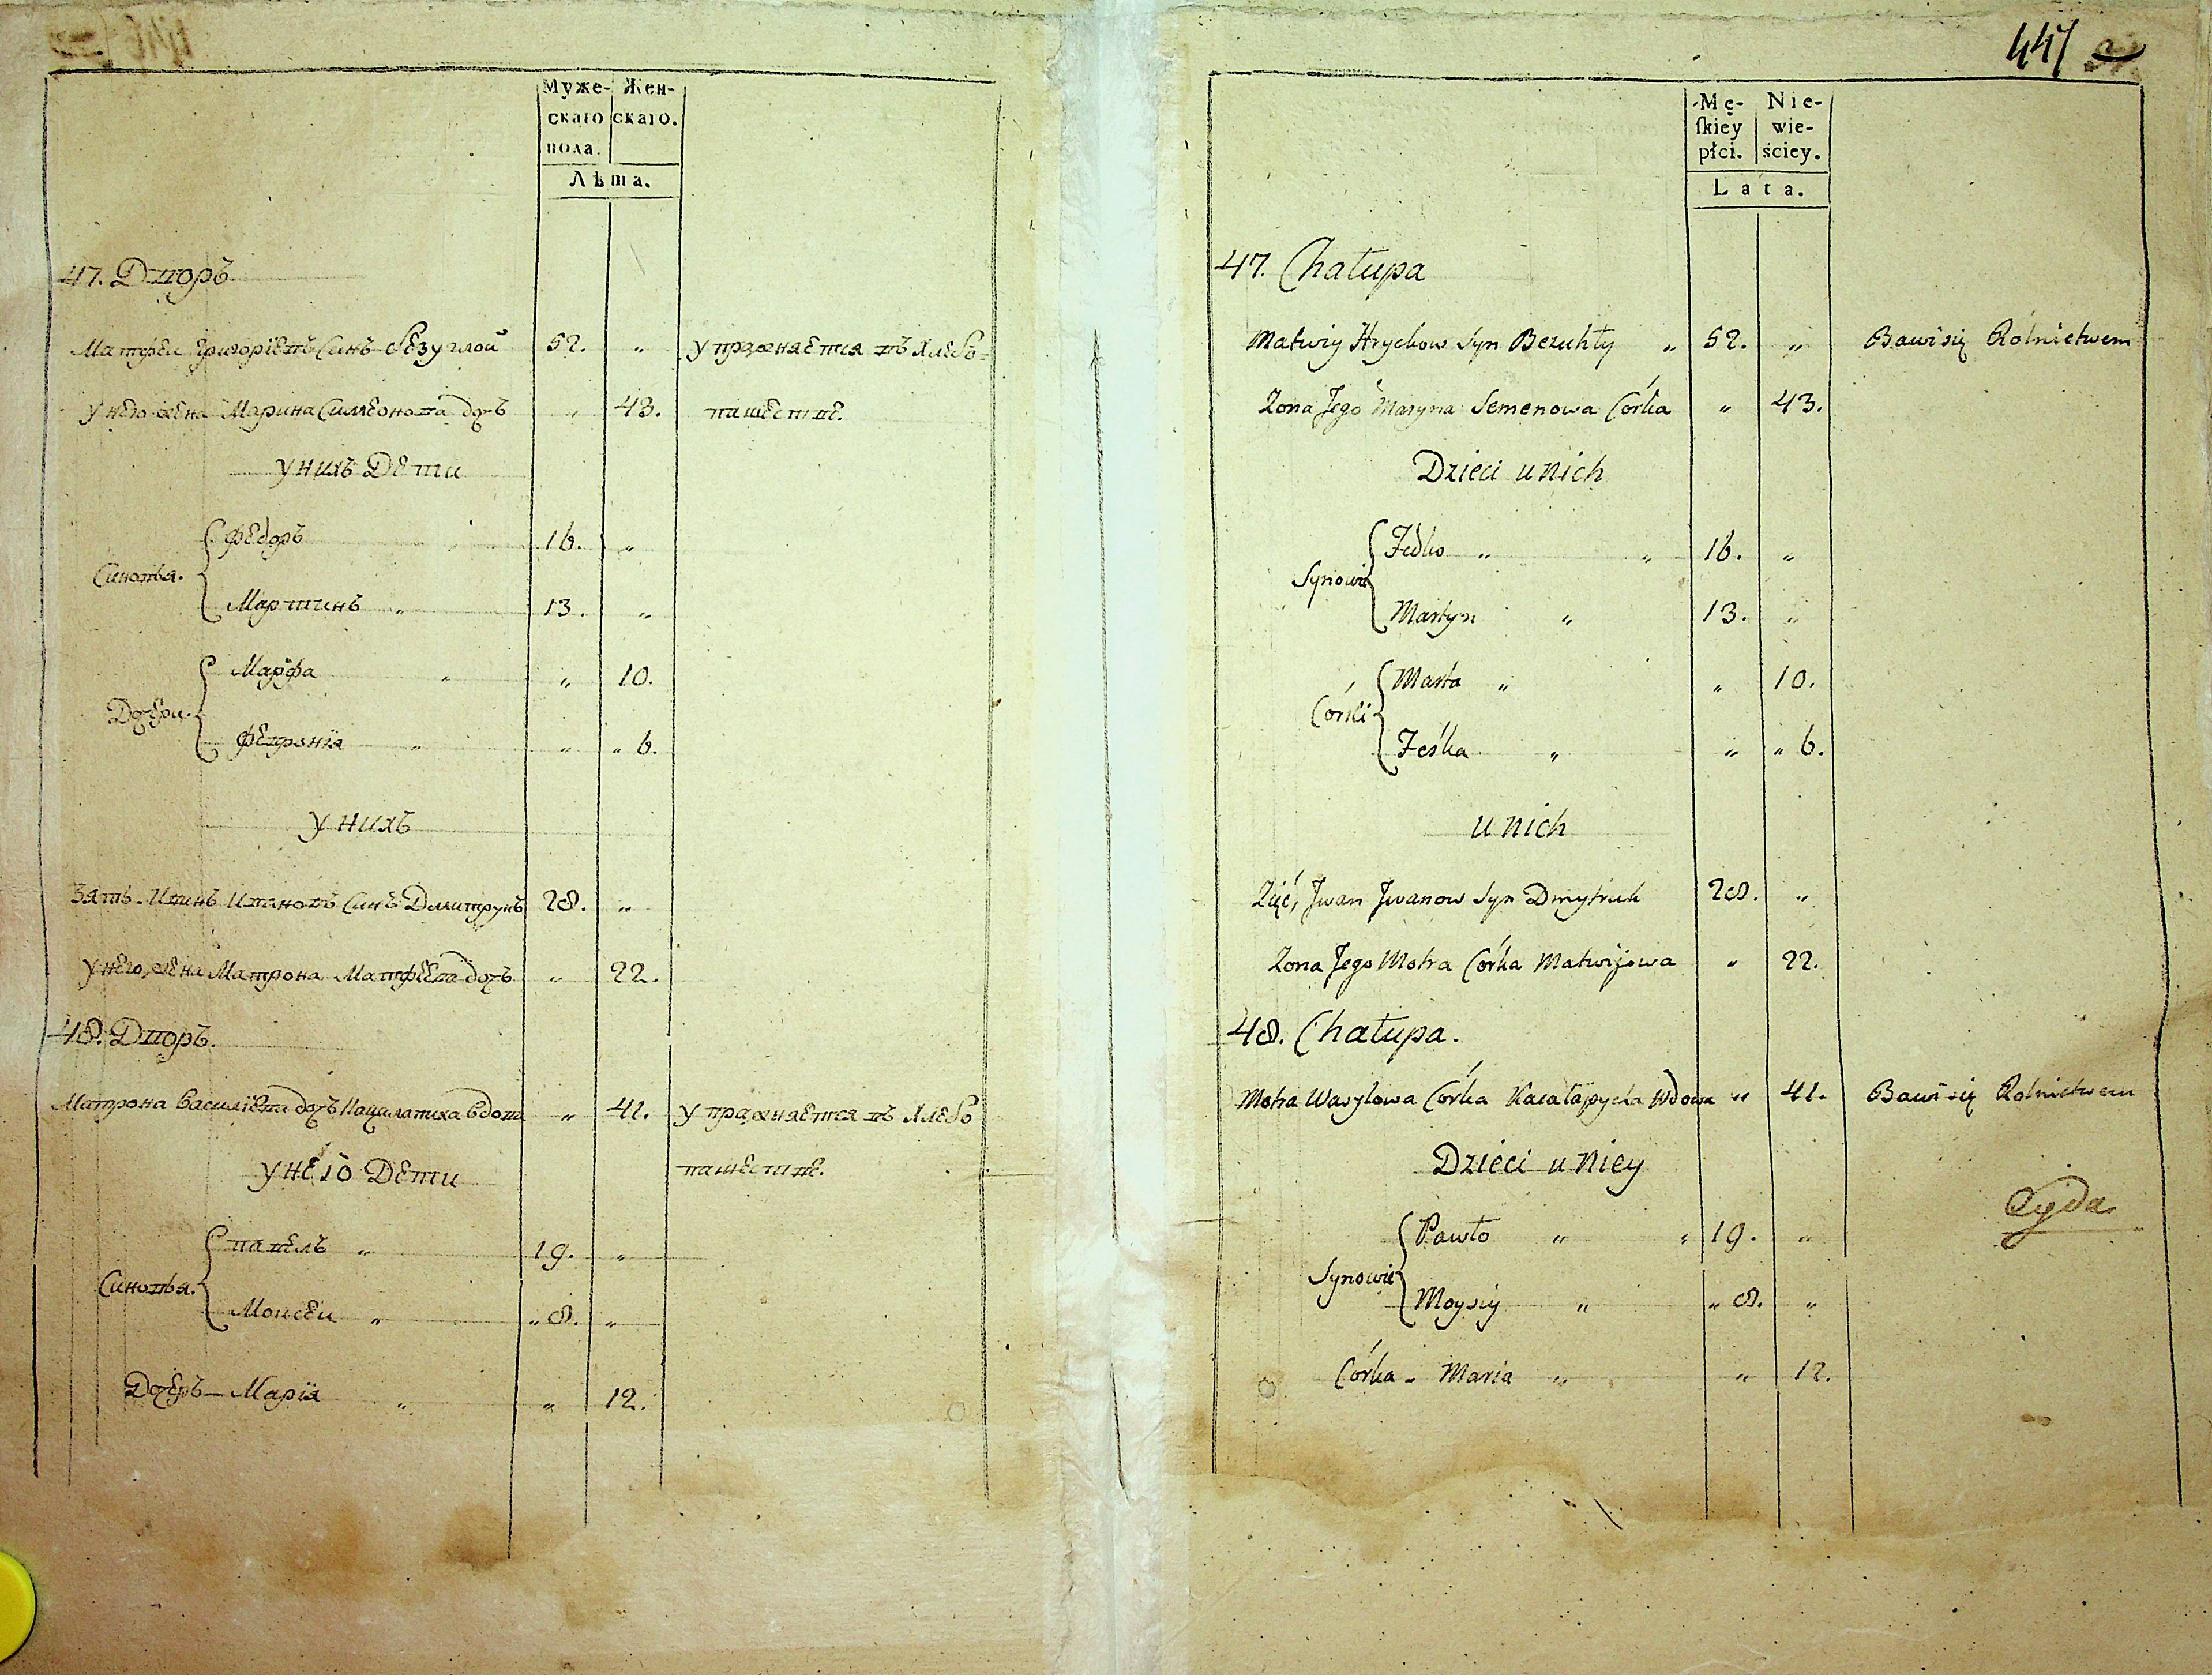 447
Муже-
скаго
пола.
Жен-
скаго.
Лѣта.
47. Дворъ
Матфеи Григориевъ Синъ Безуглой 52. „ упражняетця въ Хлебо-
у него жена Марина Симеонова дочъ „ 43. пашестве.
у нихъ Дети
Синовья.
Федоръ 16. „
Мартинъ „ 13. „
Дочери.
Марфа „ „ 10.
Февронїя „ „ „ 6.
у нихъ
Зять Иванъ Ивановъ Синъ Дмитрукъ 28. „
у него жена Матрона Матфеева дочъ „ 22.
48. Дворъ.
Матрона Василиева дочъ вдова „ 41. упражняетця въ Хлебо
у него Дети пашестве.
Синовья.
Павелъ „ 19. „
Моисеи „ „ 8. „
Дочеръ – Марїя „ „ 12.
Mę-
ſkiey
płci.
Nie-
wie-
ściey.
Lata.
47. Chałupa
Matwiy Hryckow Syn Bezuhły „ 52. „ Bawi się Rolnictwem
Zona Jego Maryna Semenowa Córka „ 43.
Dzieci u nich
Synowie
Fedko „ „ 16. „
Martyn „ 13. „
Córki
Marta „ „ 10.
Feśka „ „ „ 6.
u nich
Zięć, Jwan Jwanow Syn Dmytruk 28. „
Zona Jego Motra Córka Matwijowa „ 22.
48. Chałupa.
Motra Wasylowa Córka Wdowa „ 41. Bawi się Rolnictwem
Dzieci u Niey
Synowie
Pawło „ „ 19. „
Moysiy „ „ 8. „
Córka - Maria „ „ 12.